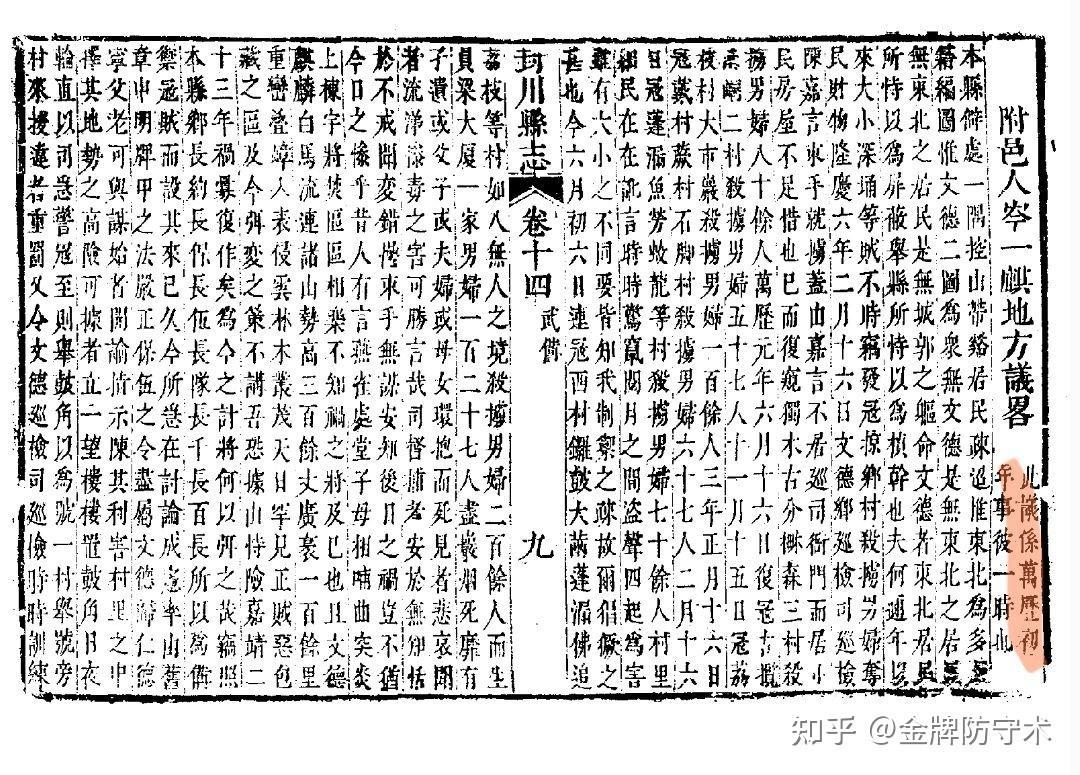 附邑人岑一麒地方議畧
此議係萬歷初
年事彼一時也
本縣僻處一隅控山帶谿居民疎逈惟東北為多
籍編圖惟文德二圖為衆無文德是無東北之居
無東北之居民是無城郭之軀命文德者東北居民
所恃以為屏蔽舉縣所恃以為楨幹也夫何邇年以
來大小深埇等賊不時竊發冦掠鄉村殺擄男婦奪
民財物隆慶六年二月十六日文德鄉巡檢司巡檢
陳嘉言水乎就擄蓋由嘉言不居巡司衙門而居小
民房屋不足惜也已而復窺獨木古分樾森三村殺
擄男婦八十餘人萬歷元年六月十一月十六日復冦古
峒二村殺擄男婦五十七人十一月十五日冦荔
枝村大市巖殺擄男婦一百餘人三年正月十六日
冦蕨村蕨村石脚村殺擄男婦六十七人二月十六
日冦蓬漏魚勞蛟龍等村殺擄男婦七十餘人村里
細民在在訛言時時驚竄閭月之間盜聲四起為害
雖有大小之不同要皆知我制禦之疎故爾猖獗之
甚也今六月初六日連冦西村鑼鼓大蓬漏佛追
封川縣志
卷十四
武備
九
荔枝等村如入無人之境殺擄男婦二百餘人而生
員梁大厦一家男婦一百二十七人盡巖烟死靡有
子遺或父子或夫婦或母女環抱而死見者悲哀聞
者流涕荼毒之害可勝言哉司督捕者安於無卹怙
於不戒聞變錯愕束乎無謀安知後日之禍豈不猶
今日之慘乎昔人有言燕雀處堂子母相哺曲突炎
上棟宇將焚區區相樂不知禍之將及已也且文德
麒麟白馬流連諸山勢高三百餘丈廣袤一百餘里
重巒叠嶂人表侵雲林木叢茂天日罕見正賊惡包
藏之區及今弭變之策不講吾恐據山恃險嘉靖二
十三年禍纂復作矣為今之計將何以弭之哉竊照
本縣鄉長約長保長伍長隊長千長百長所以為備
禦冦賊而設其來已久今所急在討論成憲率由舊
章申明牌甲之法嚴正保伍之令盡屬文德歸仁德
寧父老可與謀始者開諭情示陳其利害村里之中
擇其地勢之高險可據者立一望樓樓置鼓角日夜
輪直以司急警冦至則舉鼓角以為號一村舉號旁
村來援遠者重罰又令文德巡檢司巡檢時時訓練